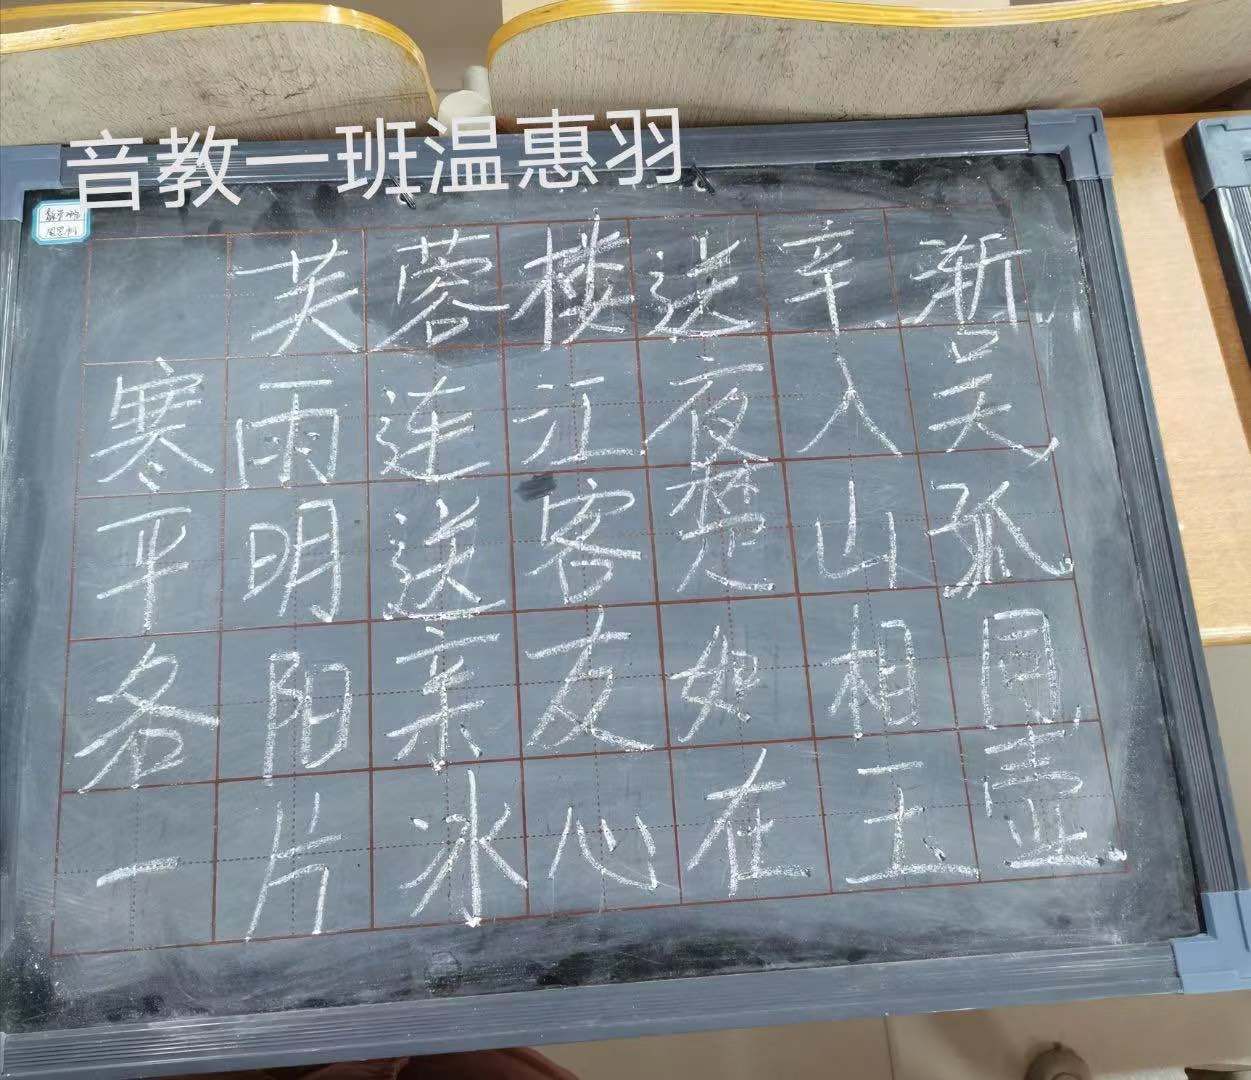 音教一班温惠羽
芙蓉楼送辛渐
寒雨连江夜入吴
平明送客楚山孤
各阳亲友如相同
一片冰心在玉壶